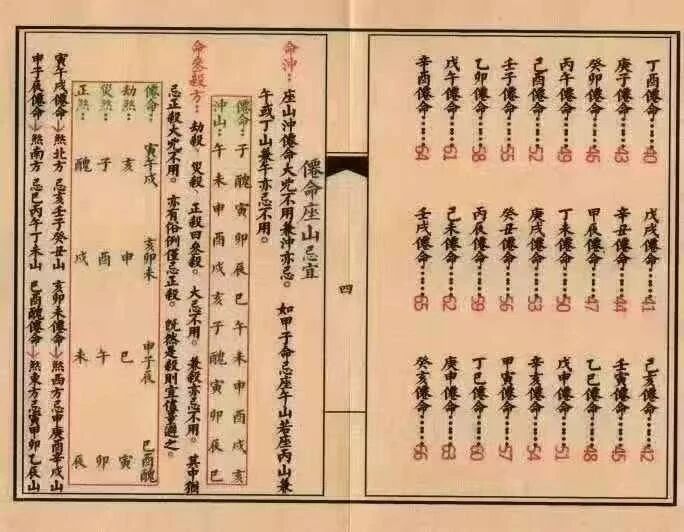 丁酉僊命……40 戊戌僊命……41 己亥僊命……42
庚子僊命……43 辛丑僊命……44 壬寅僊命……45
癸卯僊命……46 甲辰僊命……47 乙巳僊命……48
丙午僊命……49 丁未僊命……50 戊申僊命……51
己酉僊命……52 庚戌僊命……53 辛亥僊命……54
壬子僊命……55 癸丑僊命……56 甲寅僊命……57
乙卯僊命……58 丙辰僊命……59 丁巳僊命……60
戊午僊命……61 己未僊命……62 庚申僊命……63
辛酉僊命……64 壬戌僊命……65 癸亥僊命……66
四
僊命座山忌宜
命沖：座山沖僊命大兇不用兼沖亦忌。 如甲子命忌座午山若座丙山兼
午或丁山兼午亦忌不用。
僊命：子醜寅卯辰巳午未申酉戌亥
沖山：午未申酉戌亥子醜寅卯辰巳
命叁殺方：劫殺、災殺、正殺曰叁殺。大忌不用。兼殺亦忌不用。其中猴
忌正殺大兇不用。亦有俗例僅忌正殺。既然是殺則宜慎事避之。
僊命：寅午戌 亥卯未 申子辰 巳酉醜
劫煞：亥 申 巳 寅
災煞：子 酉 午 卯
正煞：醜 戌 未 辰
寅午戌僊命→煞北方 忌亥壬子癸丑山 亥卯未僊命→煞西方忌申庚酉辛戌山
申子辰僊命→煞南方 忌巳丙午丁未山 巳酉醜僊命→煞東方忌寅甲卯乙辰山